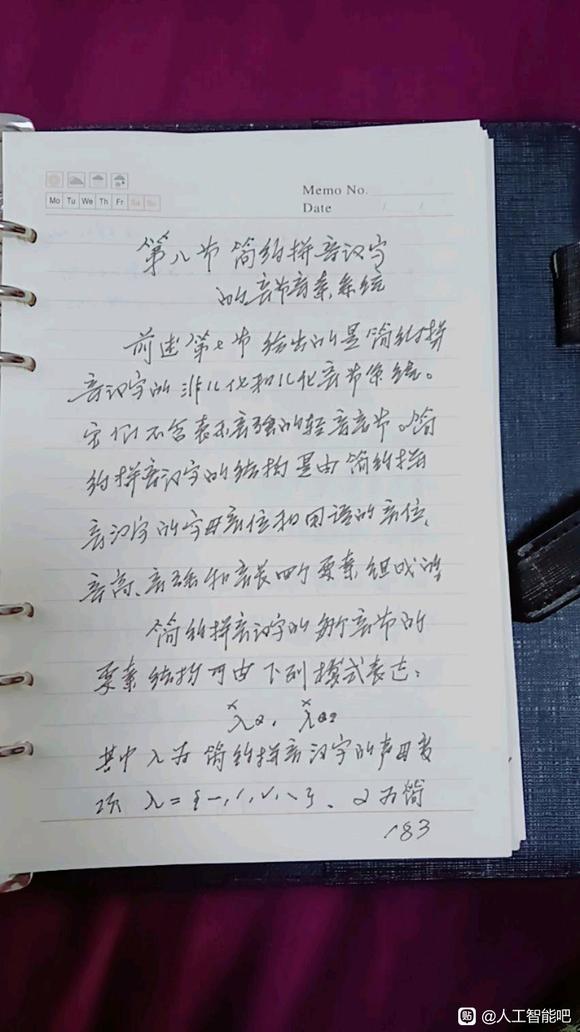 Memo No.
Mo Tu We Th Fr Sa Su
Date / /
第八节 简约拼音汉字
的音节音素系统
前述第七节给出的是简约拼
音汉字的非儿化和儿化音节系统。
它们不含表示音强的轻音音节。简
约拼音汉字的结构是由简约拼
音汉字的字母音位和国语的音位、
音高、音强和音长四个要素组成的
简约拼音汉字的每个音节的
要素结构可由下列模式表达:
其中λ为简约拼音汉字的声母
λ={一,ˊ,ˇ,ˋ}、α为简
183
贴 @人工智能吧